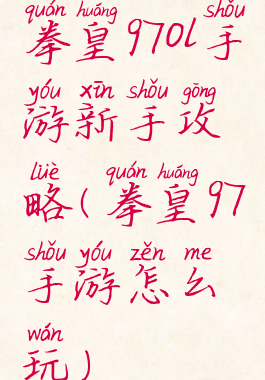 quán huáng shǒu
拳皇970l手
yóu xīn shǒu gōng
游新手攻
lüè quán huáng
略(拳皇97
shǒu yóu zěn me
手游怎么
wán
玩)